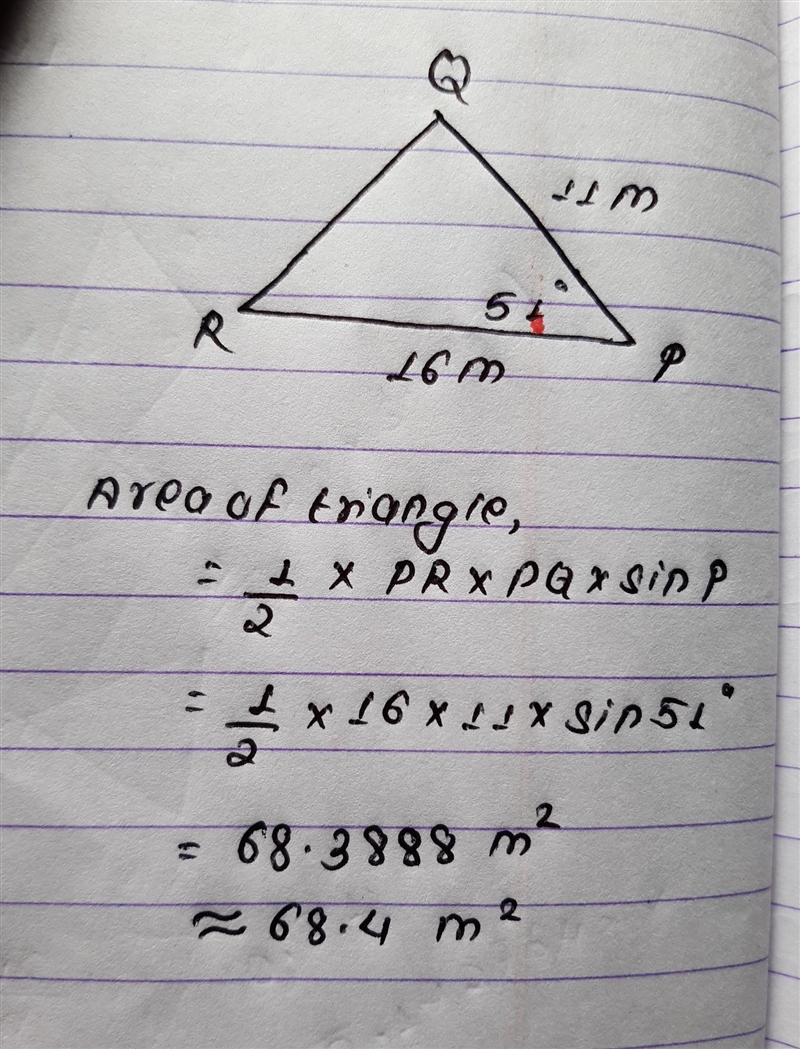 Q
11 m
51°
R
16 m
P
Area of triangle,
= 1/2 × PR × PQ × sin P
= 1/2 × 16 × 11 × sin 51°
= 68.3888 m²
≈ 68.4 m²